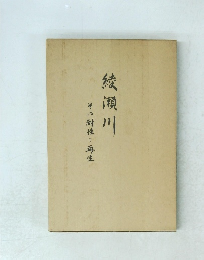 綾瀬川
その対話と再生